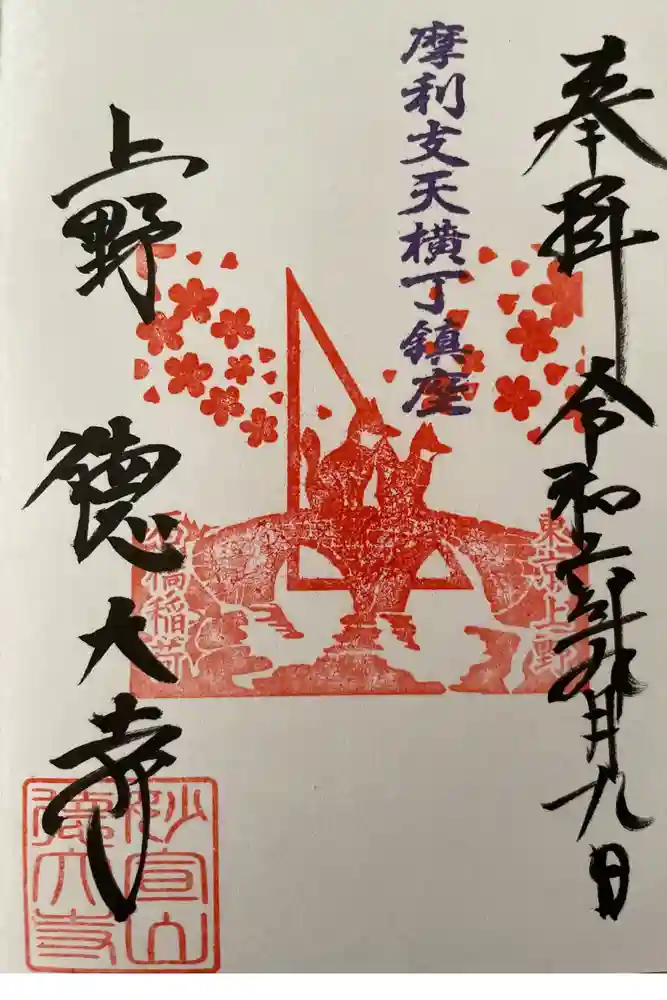 奉拝 令和六年 月九日
摩利支天横丁鎮座
東京上野
石橋稲荷
上野 徳大寺
妙宣山
徳大寺